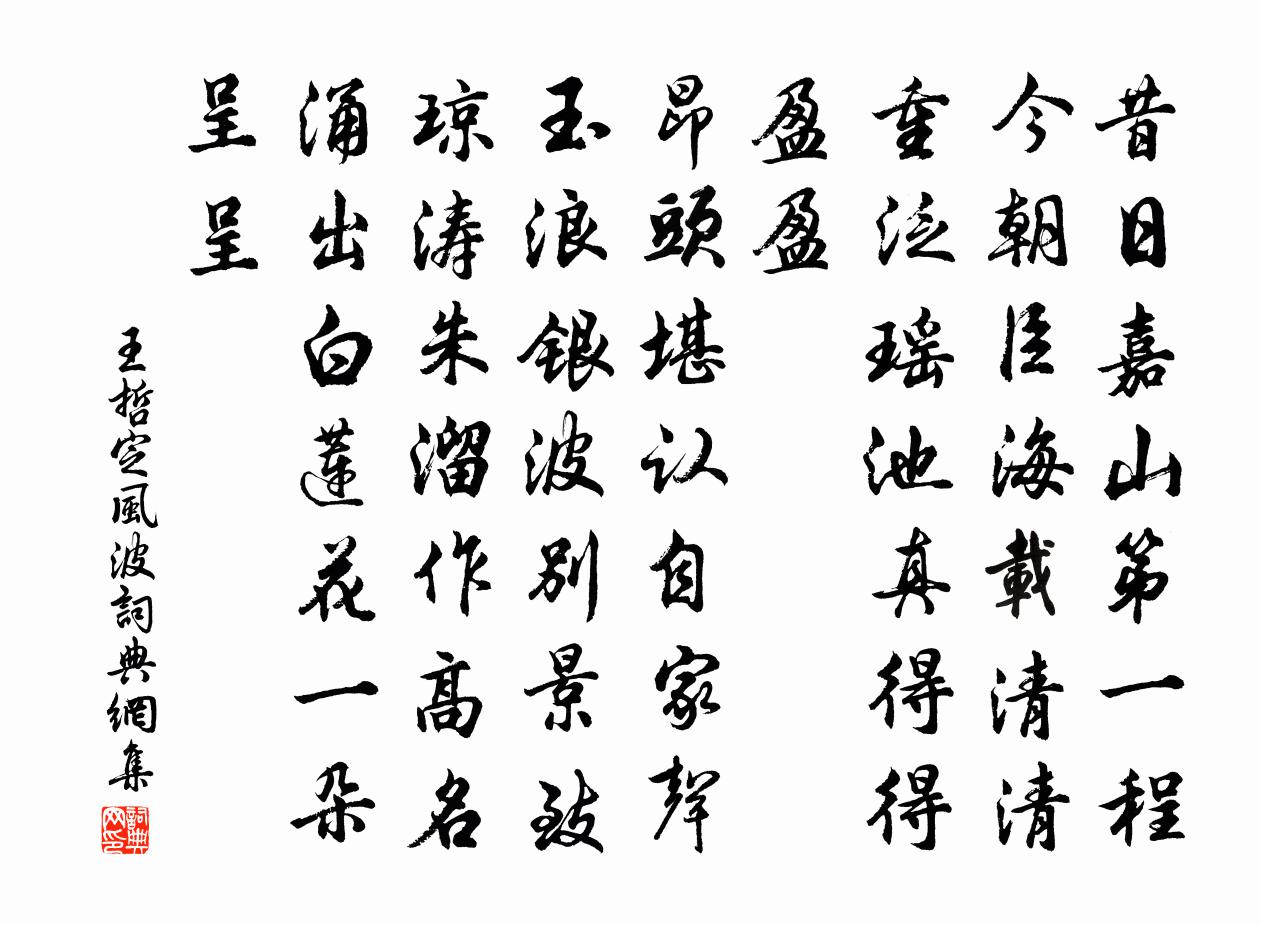 昔日嘉山第一程
今朝臣海載清清
重泛瑶池真得得
盈盈
昂頭堪认自家聲
玉浪銀波別景致
琼涛朱溜作高名
涌出白蓮花一朵
呈呈
王哲定風波詞典網集
詞典网印